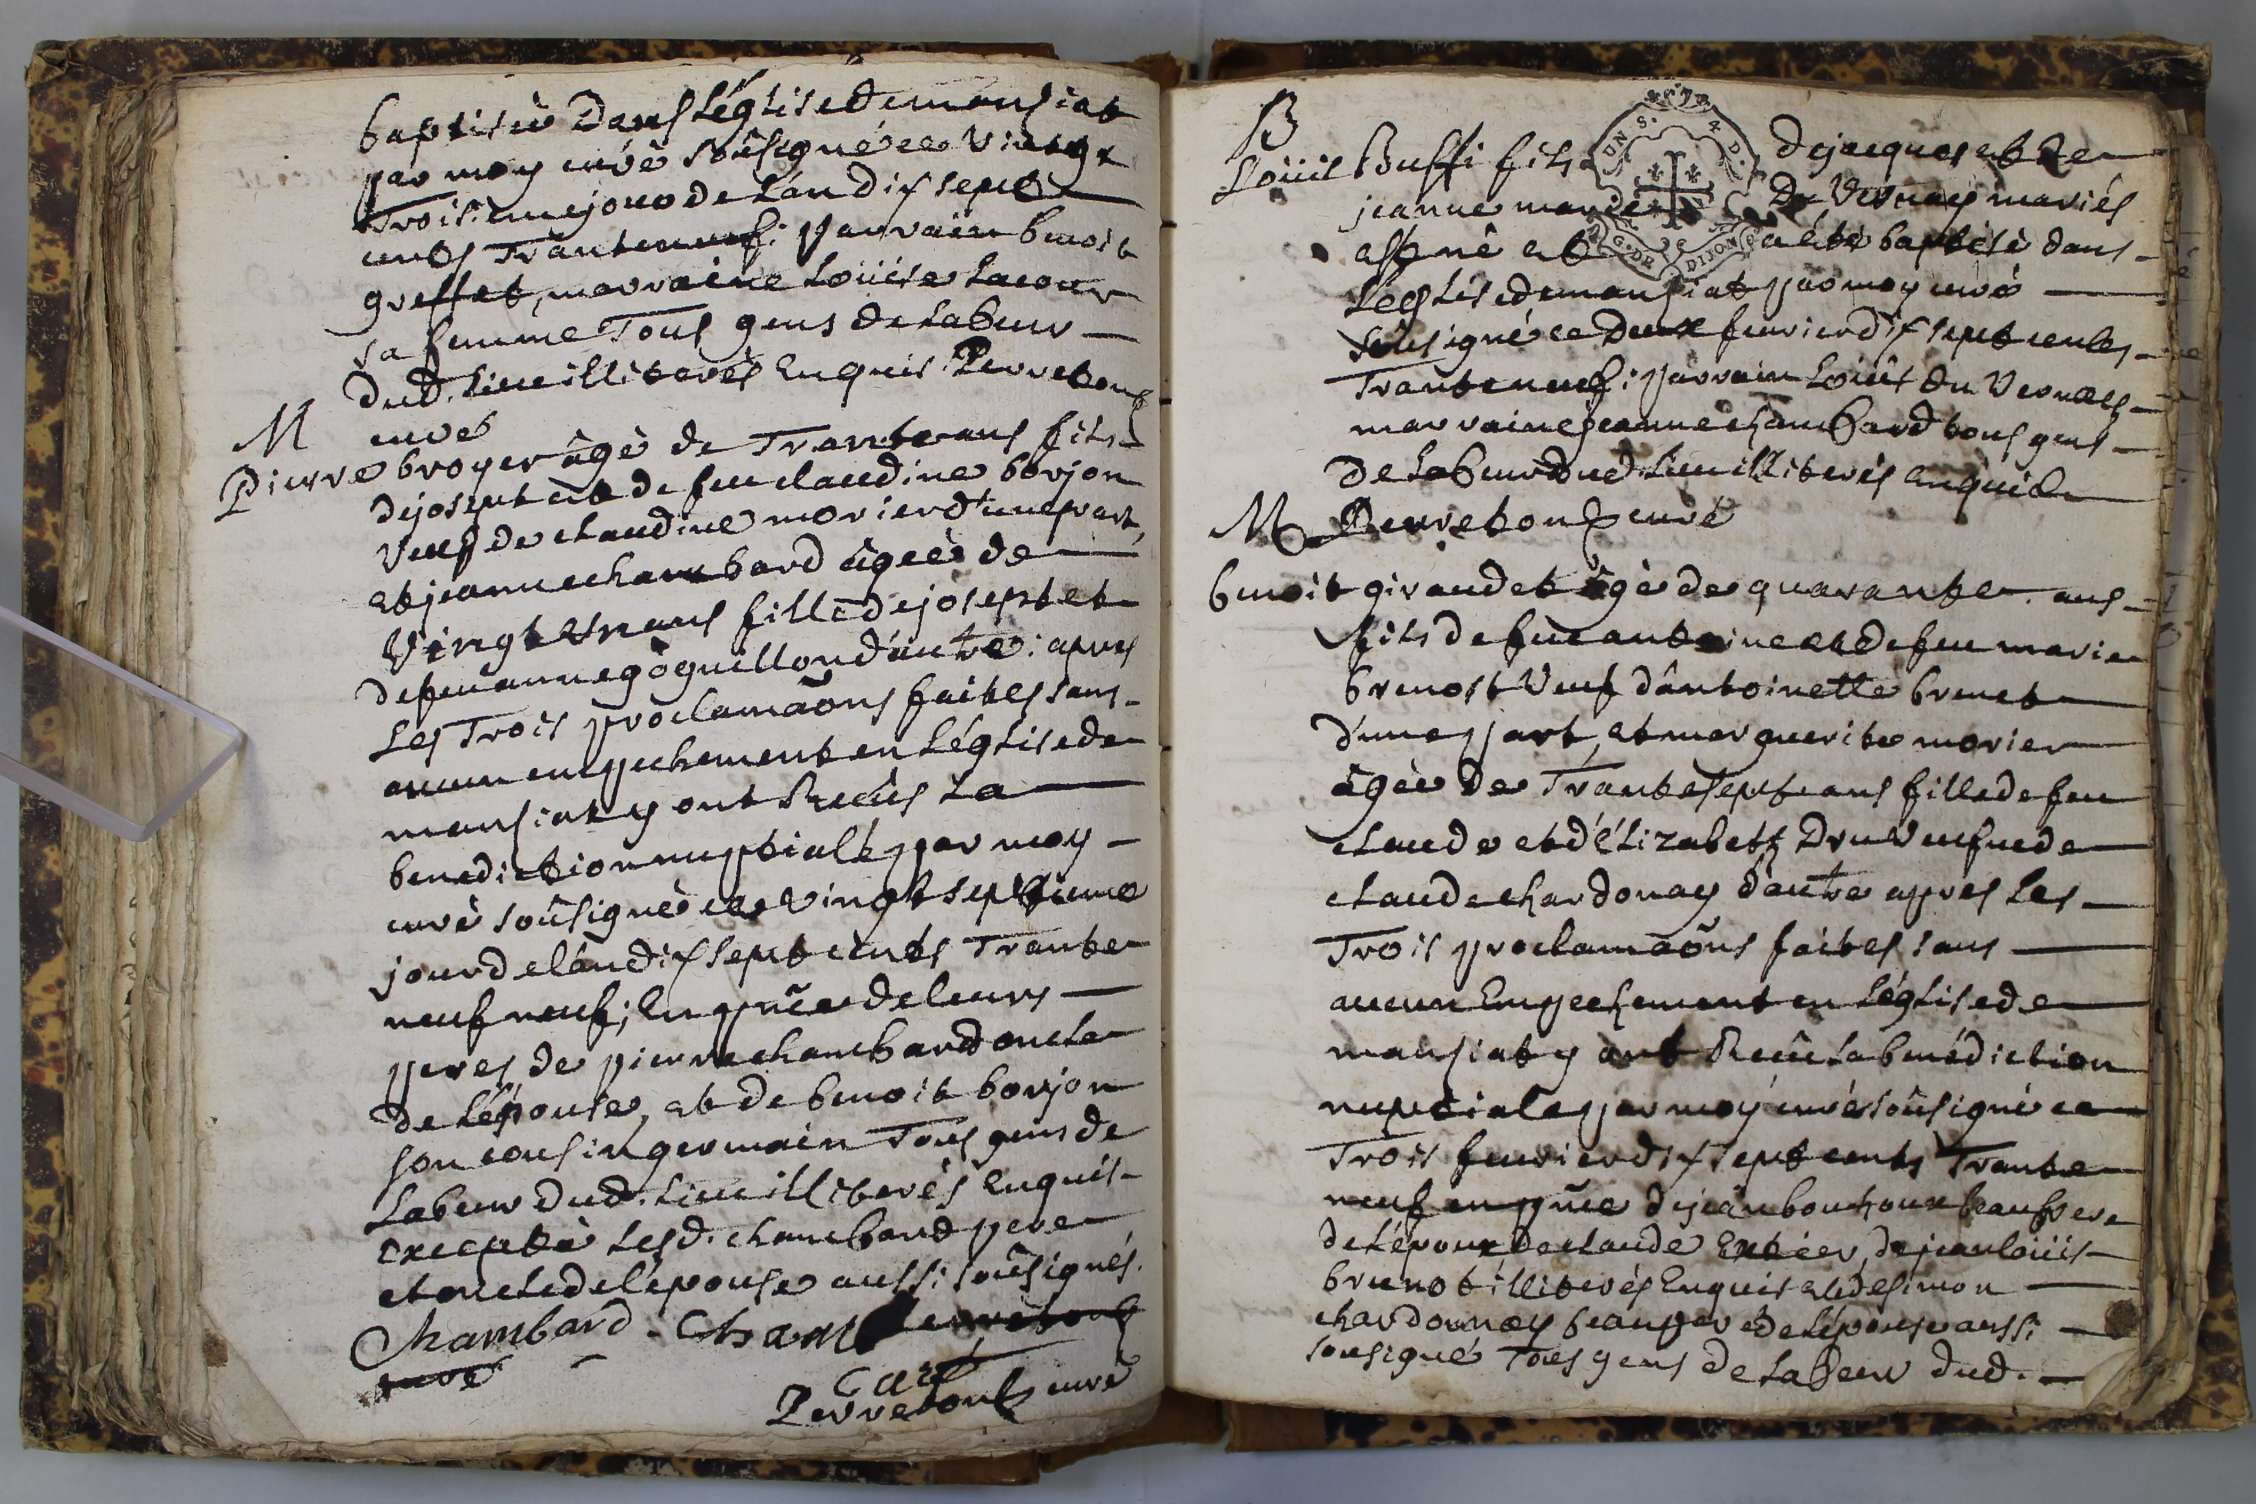 baptisée dans léglise de mansiat
par moy curé soûsigné ce vingt
troisième jour de l'an dix sept
cents trante neuf: parrain benoit
greffet, marraine loüise lacour
sa femme tous gens de labeur
dud. lieu illiterés enquis. Perretony
curé
M
Pierre broyer âgé de trante ans fils
de josept et de feu claudine borjon
veuf de claudine morier d'une part,
et jeanne chambard âgée de
vingt ans fille de josept et
de feu anne goguillon d'autre: apres
les trois proclamaõns faites sans
aucun enpechement en léglise de
mansiat y ont Recûs la
benediction nuptiale par moy
curé soûsigné ce vingt septieme
jour de lan dix sept cents trante
neuf neuf; en pñce de leurs
peres de pierre chambard oncle
de lépouse, et de benoit borjon
son cousin germain tous gens de
labeur dud. lieu illiterés enquis
excepté lesd. chambard pere
et oncle de lépouse aussi soûsignés.
Chambard. Cham
curé
Curé
Perretony curé
B
Loüis Buffi fils de jacques et de
jeanne marie Du Vernay mariés
est né et a été baptisé dans
léglise de mansiat par moy curé
soûsigné ce deux feuvrier dix sept cents
trante neuf: parrain Loüis du Vernay
marraine jeanne chambard tous gens
de labeur dud. lieu illiterés enquis
Perretony curé
UN S. 4 D.
G. DE DIJON
M
benoit giraudet âgé de quarante ans
fils de feu antoine et de feu marie
brenost veuf d'antoinette brenet
d'une part, et marguerite morier
âgée de trante sept ans fille de feu
claude et d'élizabeth Dru veufue de
claude chardonay d'autre apres les
trois proclamaõns faites sans
aucun enpechement en léglise de
mansiat y ont Recûe la bénédiction
nuptiale par moy curé soûsigné ce
trois feuvrier dix sept cents trante
neuf en pñce de jean bouhoux beaufrere
de lépoux de claude de jean loüis
brunot illiterés enquis et de simon
chardonnay beaupere de lépouse aussi
soûsigné tous gens de labeur dud.